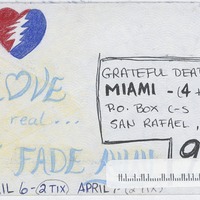 LOVE
real...
FADE
GRATEFUL DEA
MIAMI -(4 +
P.O. BOX C-S
SAN RAFAEL,
9
IL 6-(2 TIX) APRIL